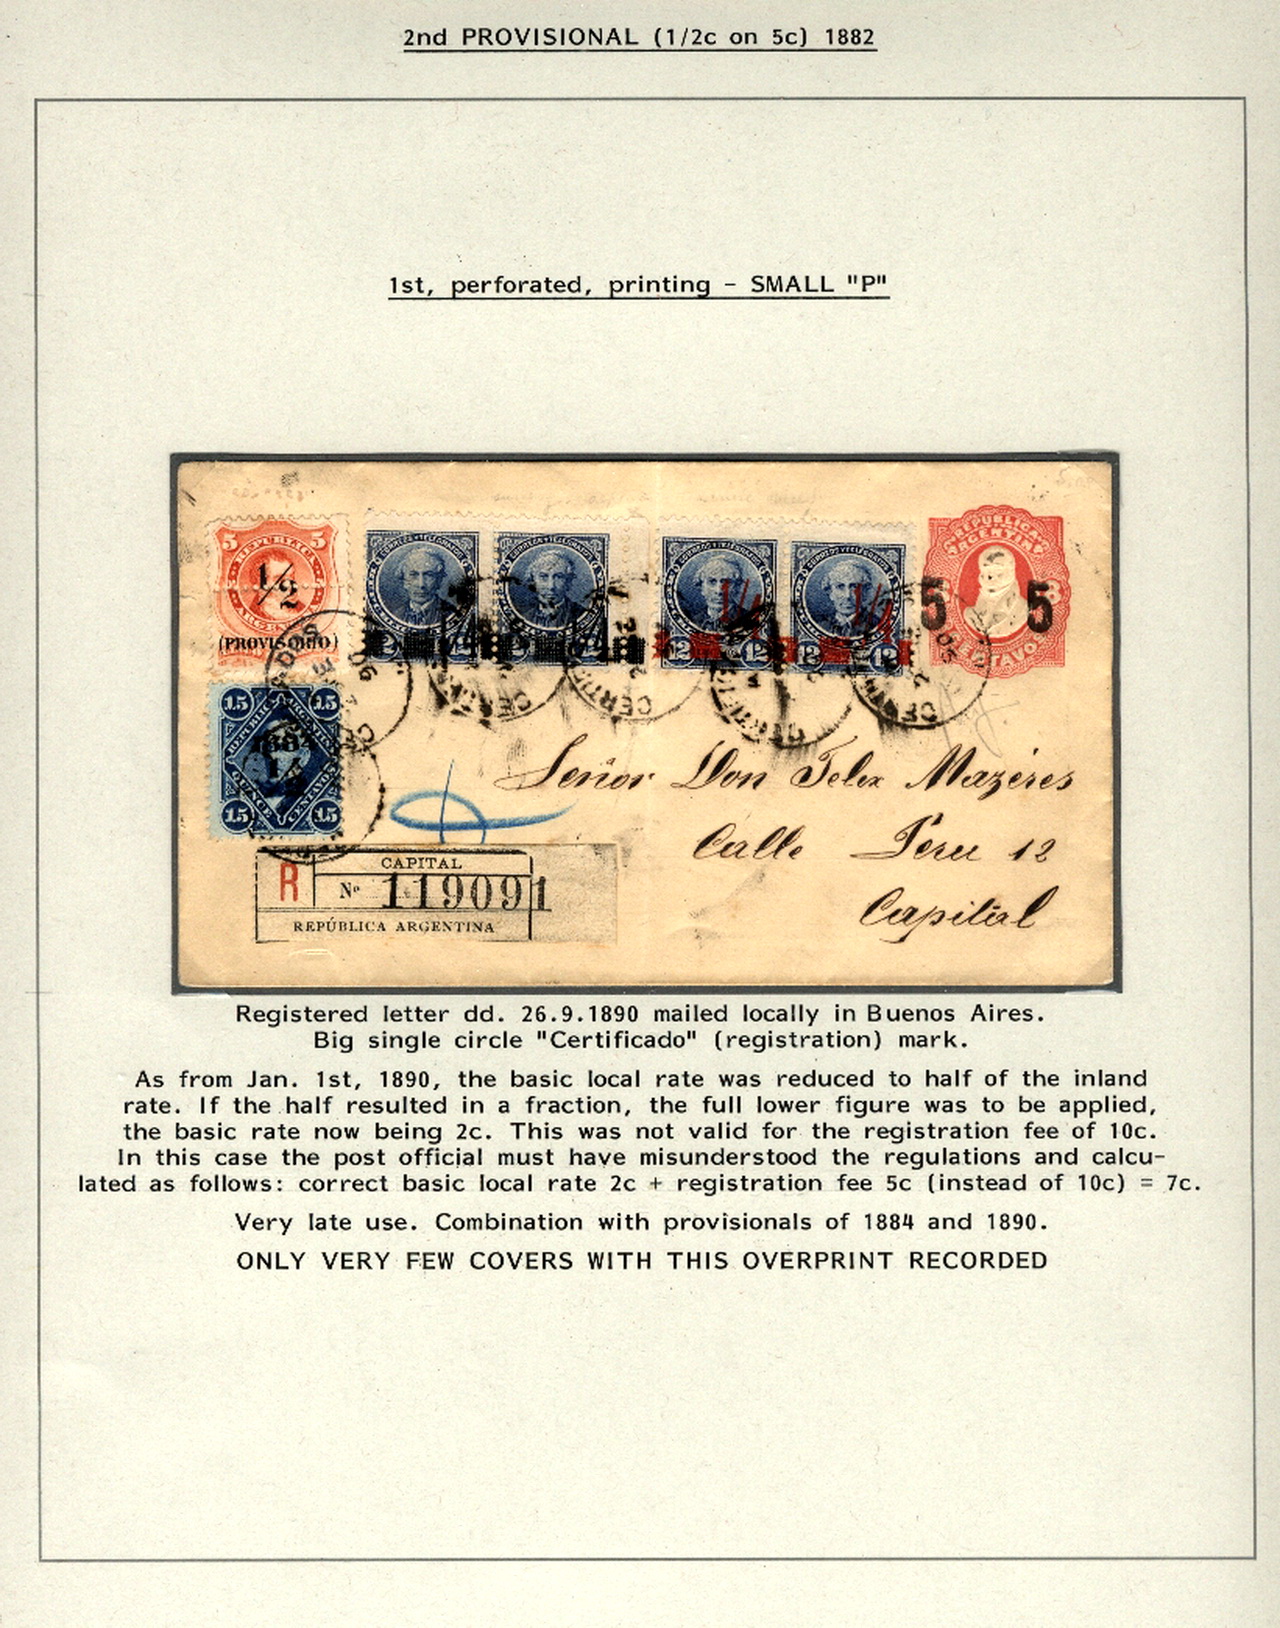 2nd PROVISIONAL (1/2c on 5c) 1882
1st, perforated, printing - SMALL "P"
5 5
REPUBLICA
1/2
(PROVISORIO)
15 15
1884
1/4
15 15
CENTAVOS
CORREOS Y TELEGRAFOS
CORREOS Y TELEGRAFOS
CORREOS Y TELEGRAFOS
CORREOS Y TELEGRAFOS
1/4 1/4
12 12
REPUBLICA
ARGENTINA
5 5
CENTAVOS
Señor Don Felix Mazéres
Calle Peru 12
Capital
CAPITAL
R Nº 119091
REPÚBLICA ARGENTINA
Registered letter dd. 26.9.1890 mailed locally in Buenos Aires.
Big single circle "Certificado" (registration) mark.
As from Jan. 1st, 1890, the basic local rate was reduced to half of the inland
rate. If the half resulted in a fraction, the full lower figure was to be applied,
the basic rate now being 2c. This was not valid for the registration fee of 10c.
In this case the post official must have misunderstood the regulations and calcu-
lated as follows: correct basic local rate 2c + registration fee 5c (instead of 10c) = 7c.
Very late use. Combination with provisionals of 1884 and 1890.
ONLY VERY FEW COVERS WITH THIS OVERPRINT RECORDED